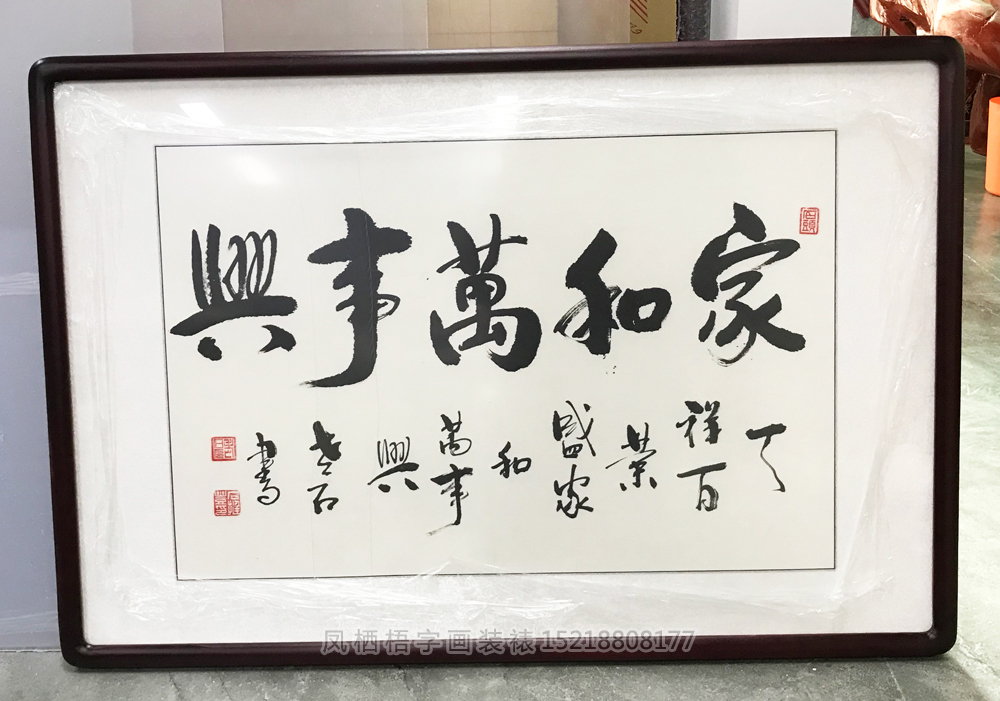 家和萬事興
祥百
業
盛家
和
萬事
興
老石
書
凤栖梧字画装裱15218808177